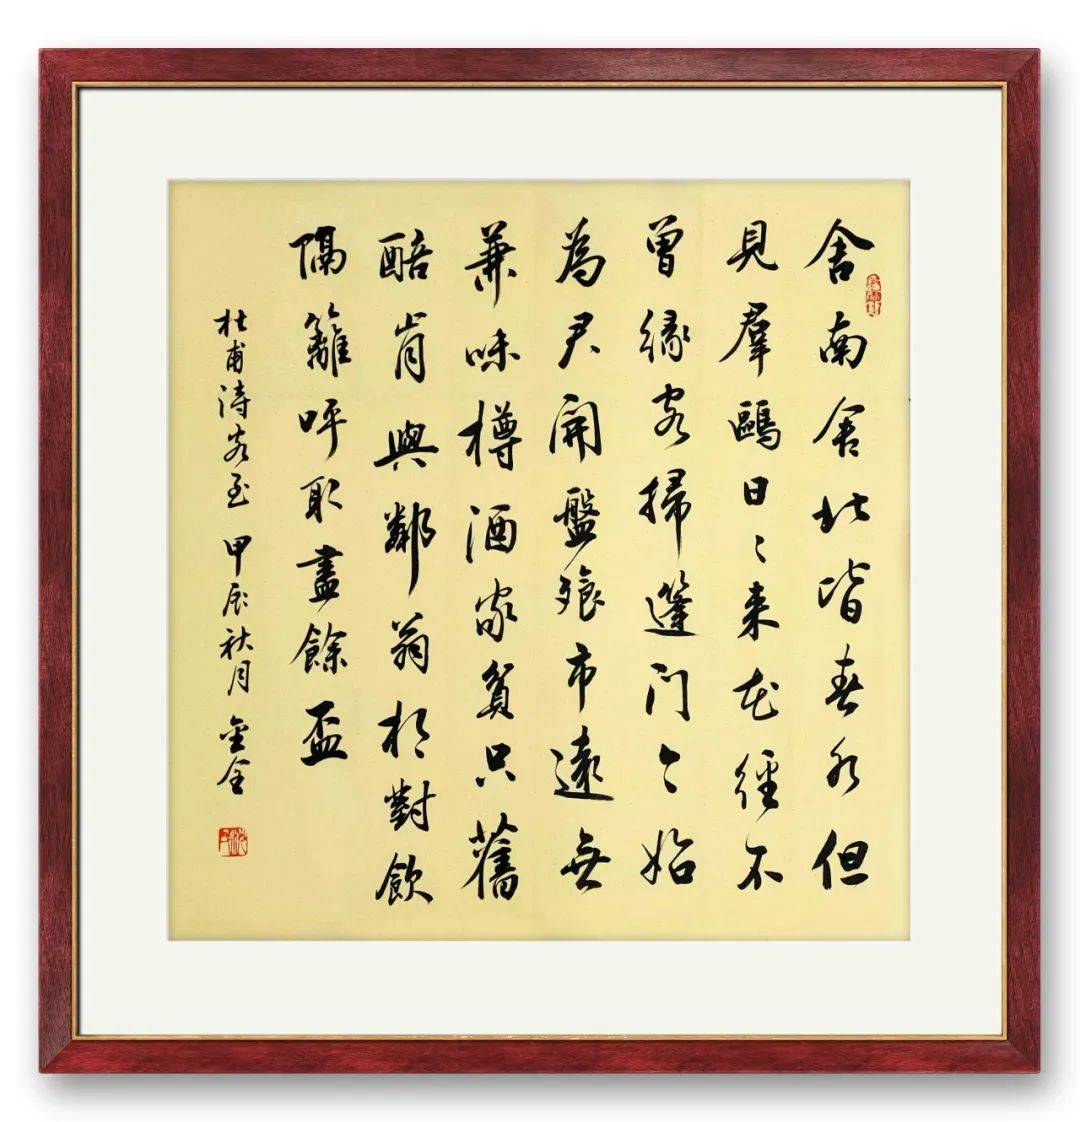 舍南舍北皆春水但
見羣鷗日〻来花徑不
曾緣客掃蓬门今始
為君開盤飧市遠無
兼味樽酒家貧只舊
醅肯與鄰翁相對飲
隔籬呼取盡餘盃
杜甫詩客至 甲辰秋月 金全